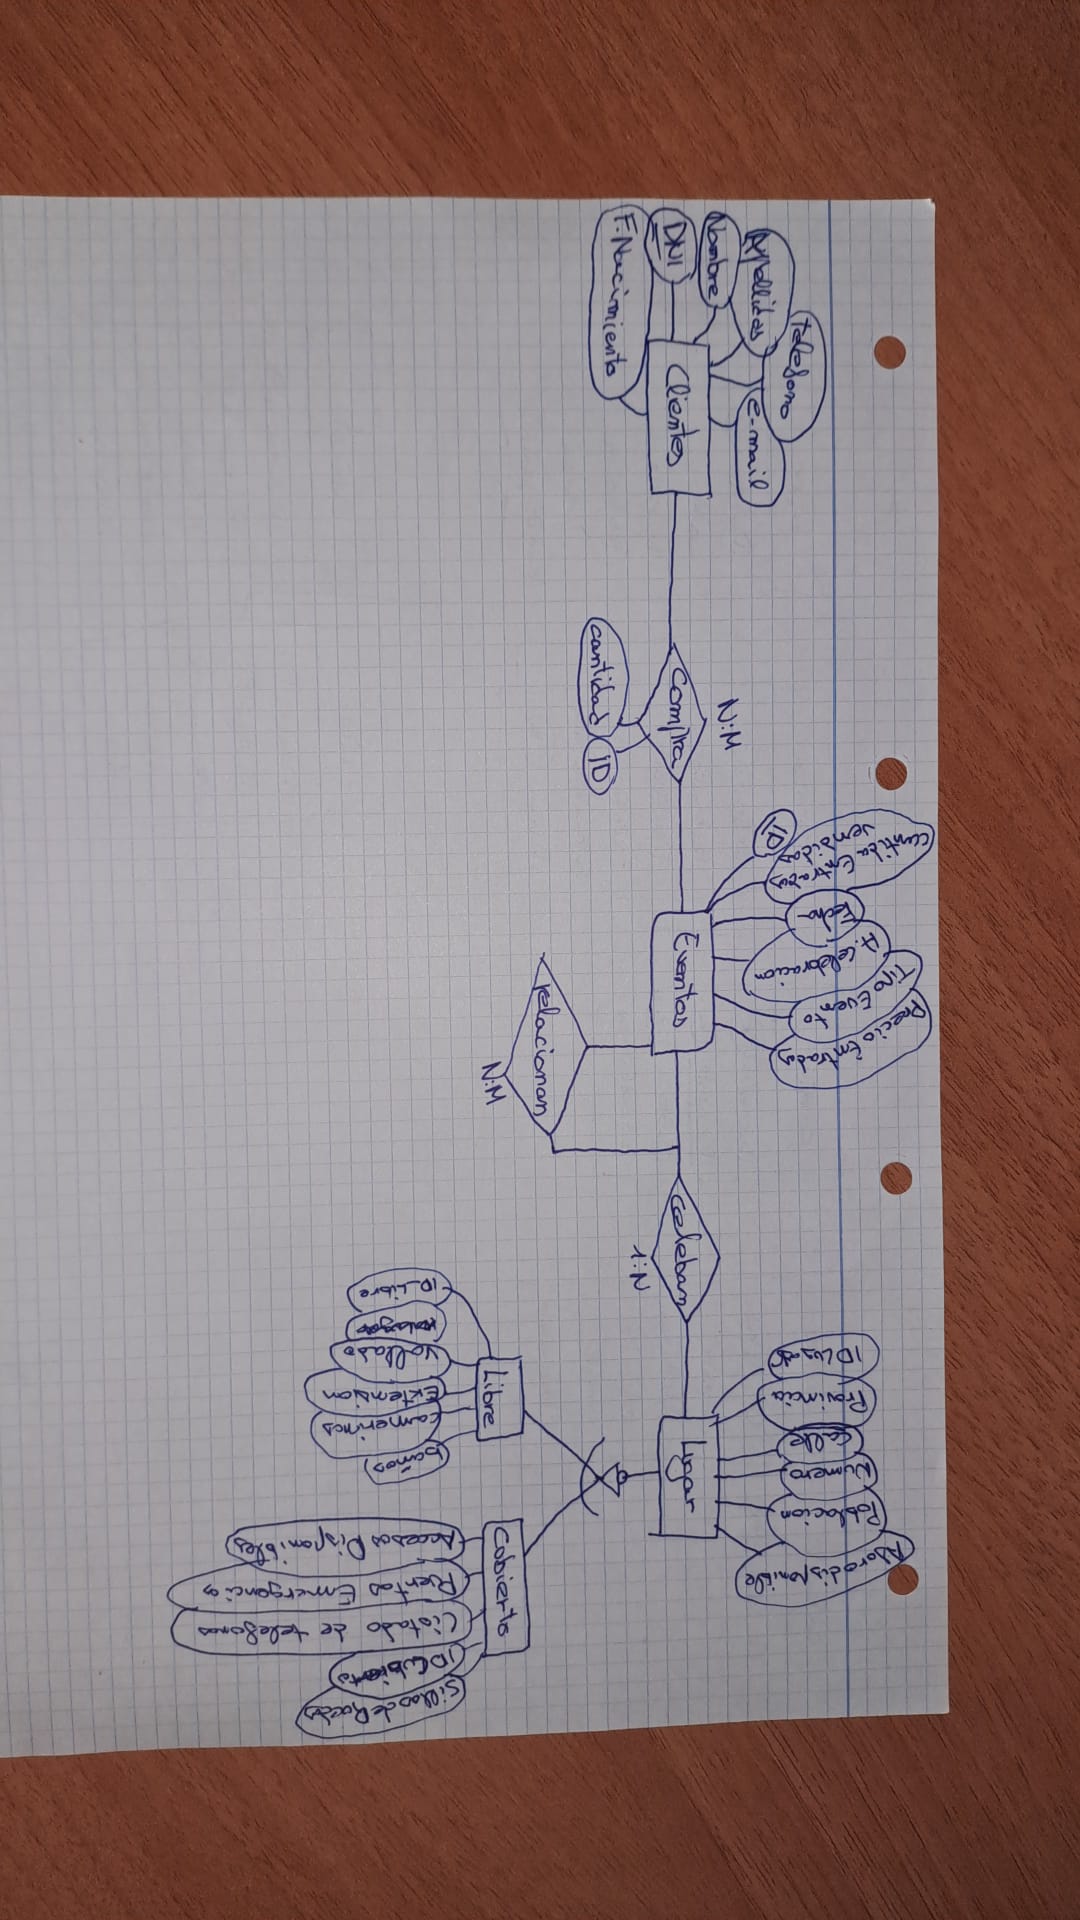 Telefono
Apellidos
e-mail
Nombre
DNI
Clientes
F.Nacimiento
N:M
compra
cantidad
ID
ID
Cantida Entradas
Vendidas
Fecha
H. Celebracion
Tipo Evento
Precio Entradas
Eventos
relacionan
N:M
celeban
1:N
ID Lugar
Provincia
Calle
Numero
Poblacion
Aforo disponible
Lugar
Libre
ID_Libre
Vallado
Extension
Camerinos
baños
Cobierto
Accesos Disponibles
Emergencias
Listado de telefonos
ID Cubierto
Sillas de Ruedas